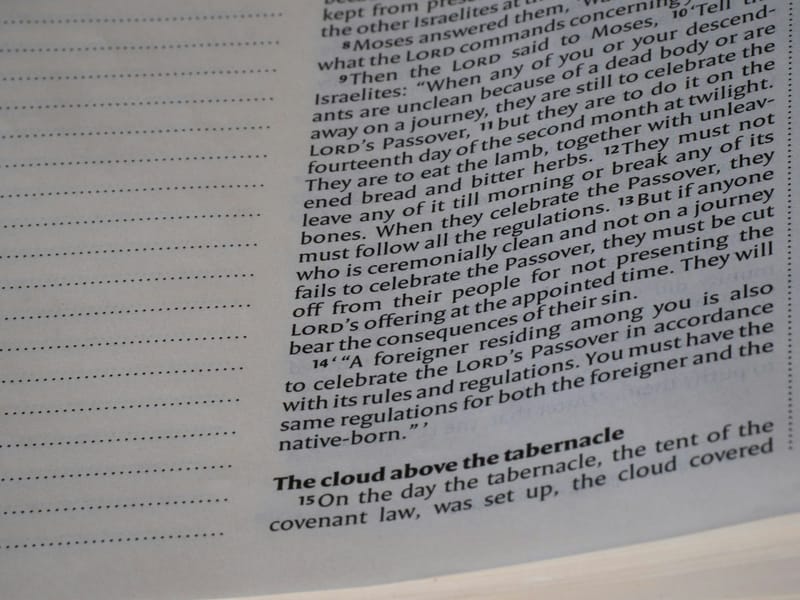 kept from pres
the other Israelites at
8Moses answered them,
what the LORD commands concerning
9Then the LORD said to Moses, 10'Tell th
Israelites: "When any of you or your descend-
ants are unclean because of a dead body or are
away on a journey, they are still to celebrate the
LORD's Passover, 11but they are to do it on the
fourteenth day of the second month at twilight.
They are to eat the lamb, together with unleav-
ened bread and bitter herbs. 12They must not
leave any of it till morning or break any of its
bones. When they celebrate the Passover, they
must follow all the regulations. 13But if anyone
who is ceremonially clean and not on a journey
fails to celebrate the Passover, they must be cut
off from their people for not presenting the
LORD's offering at the appointed time. They will
bear the consequences of their sin.
14'"A foreigner residing among you is also
to celebrate the LORD's Passover in accordance
with its rules and regulations. You must have the
same regulations for both the foreigner and the
native-born."'
The cloud above the tabernacle
15On the day the tabernacle, the tent of the
covenant law, was set up, the cloud covered